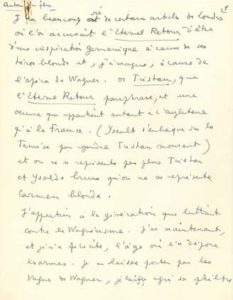 J'ai beaucoup ri de certains articles de Londres
où l'on accusait l'Eternel Retour d'être
d'une inspiration germanique à cause de ses
héros blonds et, j'imagine, à cause de
l'opéra de Wagner. Or Tristan, que
l'Eternel Retour paraphrase, est une
œuvre qui appartient autant à l'Angleterre
qu'à la France. (Yseult s'embarque sur la
Tamise pour rejoindre Tristan mourant)
et on ne se représente pas plus Tristan
et Ysolde bruns qu'on ne se représente
Carmen blonde.
J'appartiens à la génération qui luttait
contre le Wagnérisme. J'ai maintenant,
et je m'en félicite, l'âge où l'on dépose
les armes. Je me laisse porter par les
vagues de Wagner, je laisse agir ses philtres